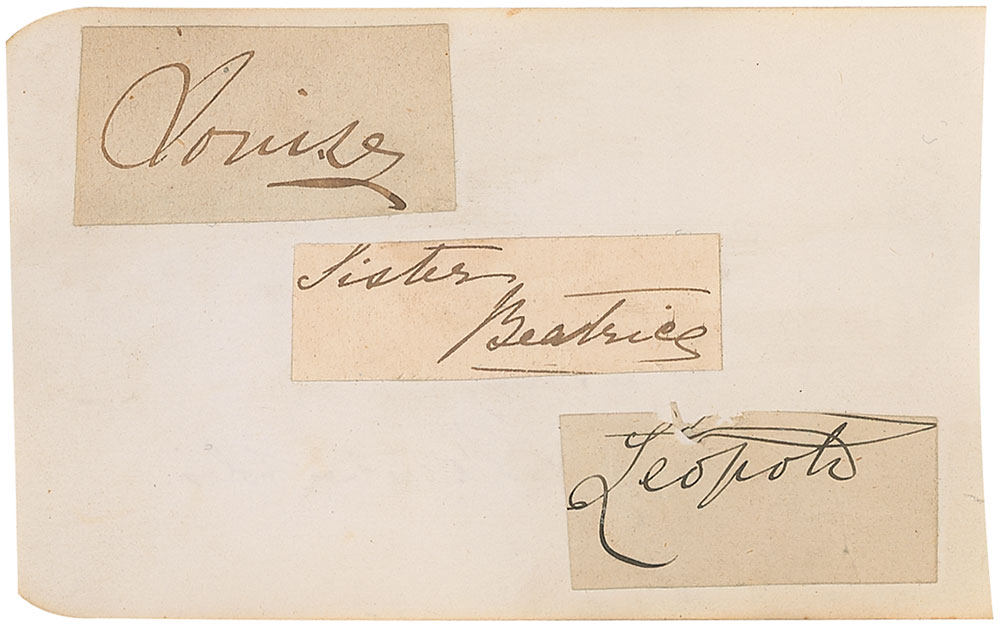 Louise
Sister
Beatrice
Leopold